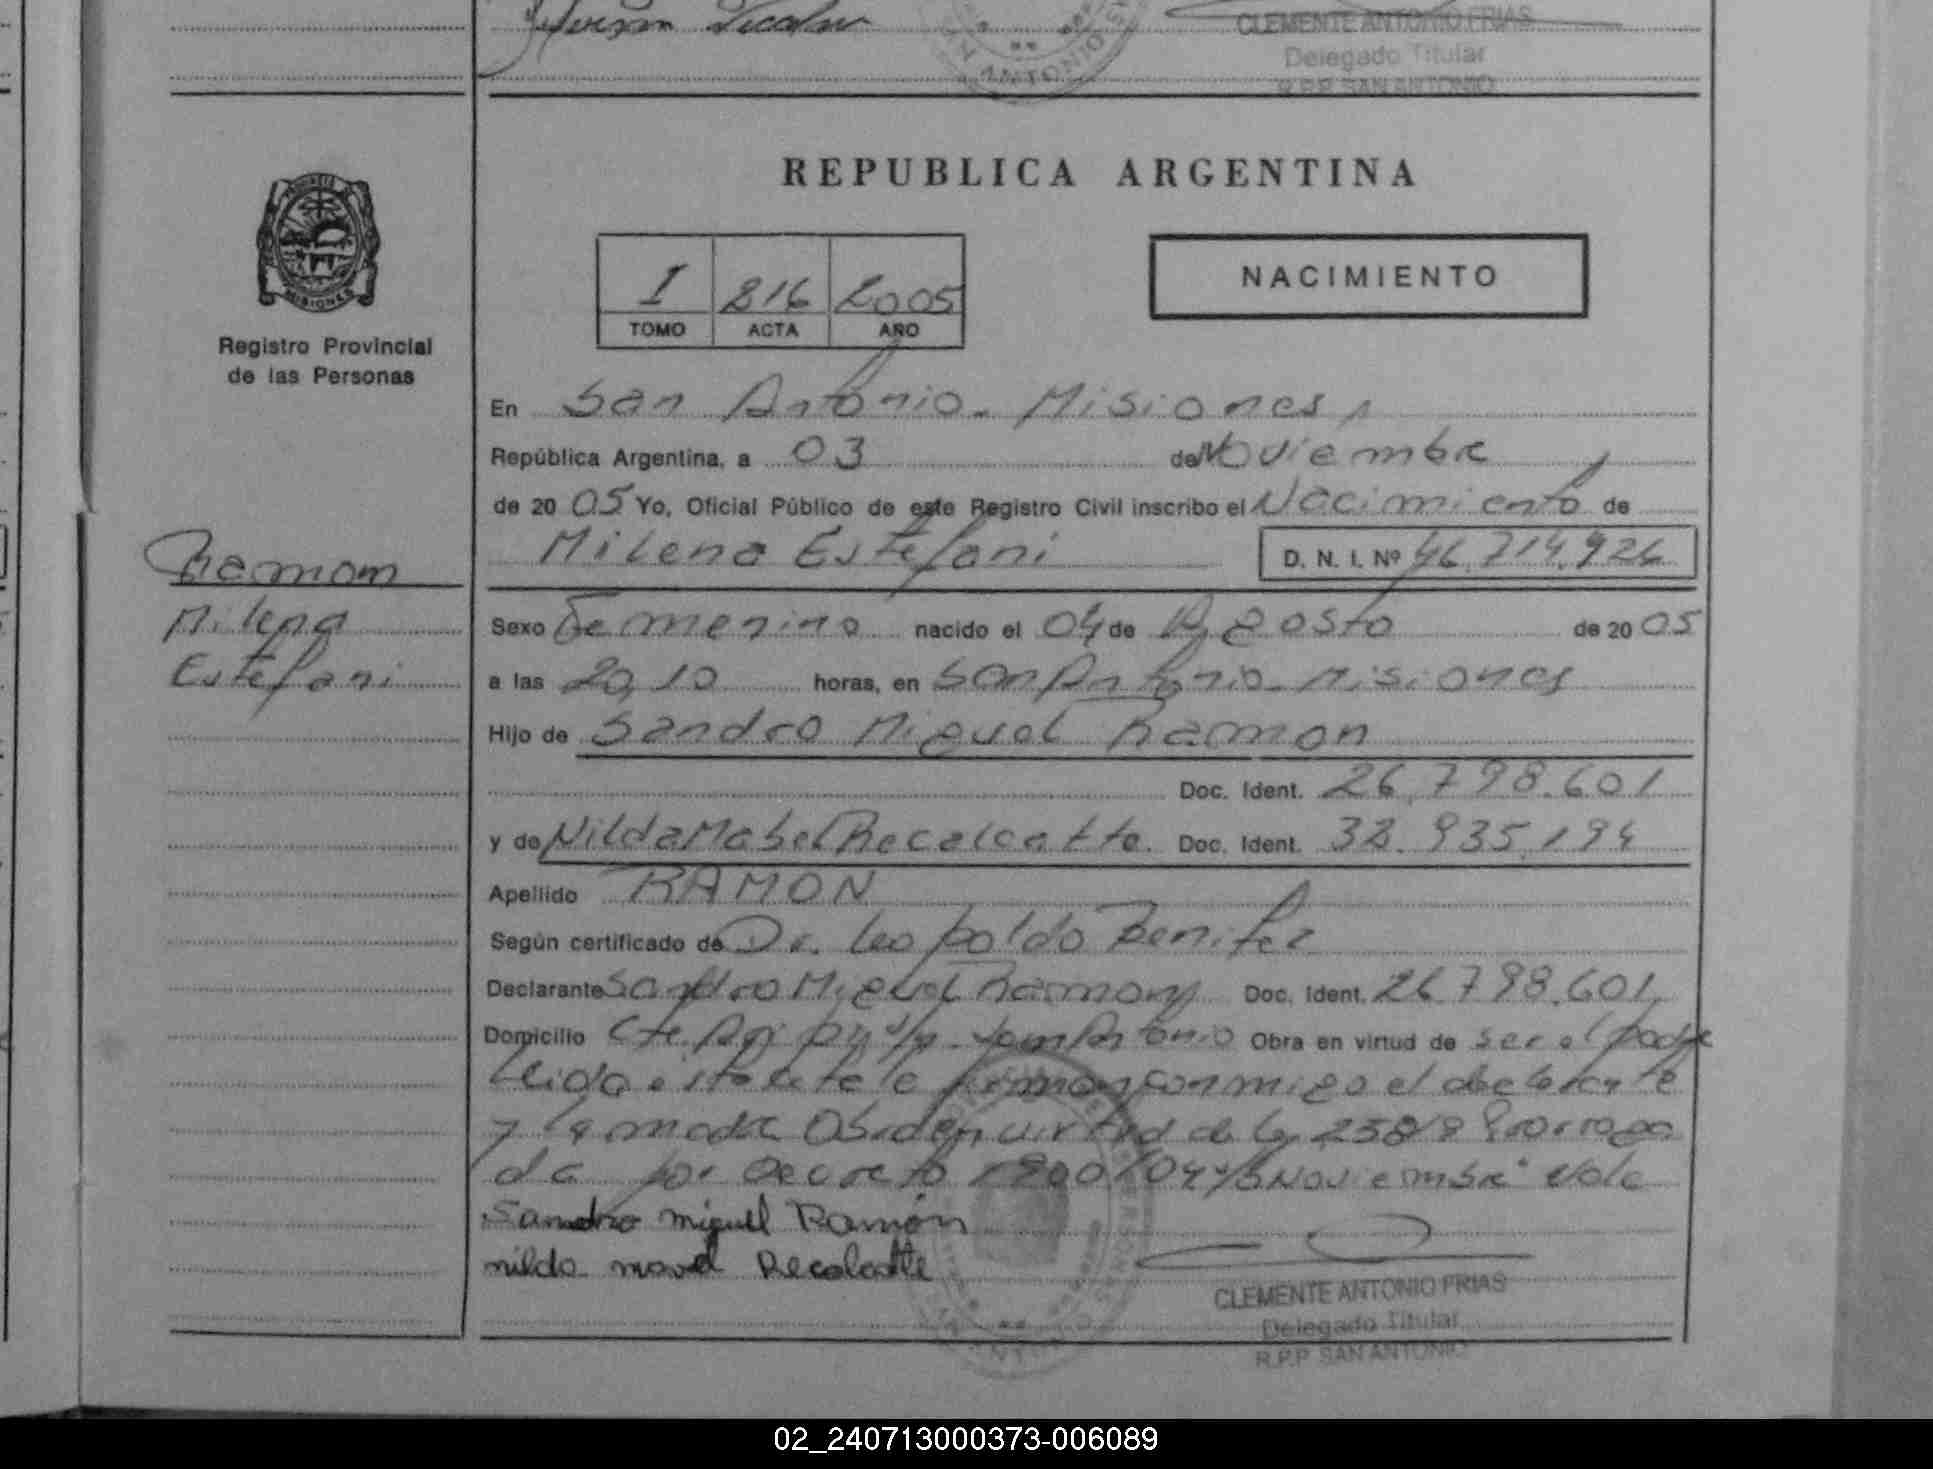 CLEMENTE ANTONIO FRIAS
Delegado Titular
R.P.P. SAN ANTONIO
REPUBLICA ARGENTINA
I 216 2005
TOMO ACTA AÑO
NACIMIENTO
PROVINCIA
MISIONES
Registro Provincial
de las Personas
Ramon
Milena
Estefani
En San Antonio - Misiones,
República Argentina, a 03 de Noviembre
de 20 05 Yo, Oficial Público de este Registro Civil inscribo el Nacimiento de
Milena Estefani D. N. I. Nº 46.714.926
Sexo Femenino nacido el 04 de Agosto de 20 05
a las 20,10 horas, en San Antonio - Misiones
Hijo de Sandro Miguel Ramon
Doc. Ident. 26.798.601
y de Nilda Mabel Recalcatte. Doc. Ident. 32.935.194
Apellido RAMON
Según certificado de Dr. Leopoldo Benitez
Declarante Sandro Miguel Ramon Doc. Ident. 26.798.601
Domicilio Cte. San Antonio Obra en virtud de ser el padre
Leida esta acta la firman conmigo el declarante
y la madre Obra en virtud de ley 25819 Prorroga
da por Decreto 1800/04 Noviembre" Vale
Sandro miguell Ramón
nilda mavel Recalcatte
CLEMENTE ANTONIO FRIAS
Delegado Titular
R.P.P. SAN ANTONIO
02_240713000373-006089